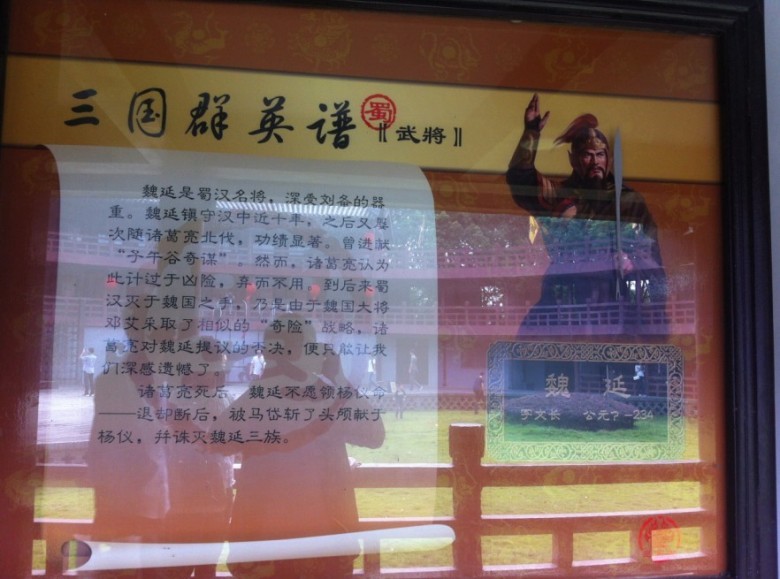 三国群英谱 蜀 武將
魏延是蜀汉名将，深受刘备的器
重。魏延镇守汉中近十年，之后又屡
次随诸葛亮北伐，功绩显著。曾进献
“子午谷奇谋”。然而，诸葛亮认为
此计过于凶险，弃而不用，到后来蜀
汉灭于魏国之手，乃是由于魏国大将
邓艾采取了相似的“奇险”战略，诸
葛亮对魏延提议的否决，便只能让我
们深感遗憾了。
诸葛亮死后，魏延不愿领杨仪令
——退却断后，被马岱斩了头颅献于
杨仪，并诛灭魏延三族。
魏 延
字文长 公元?－234